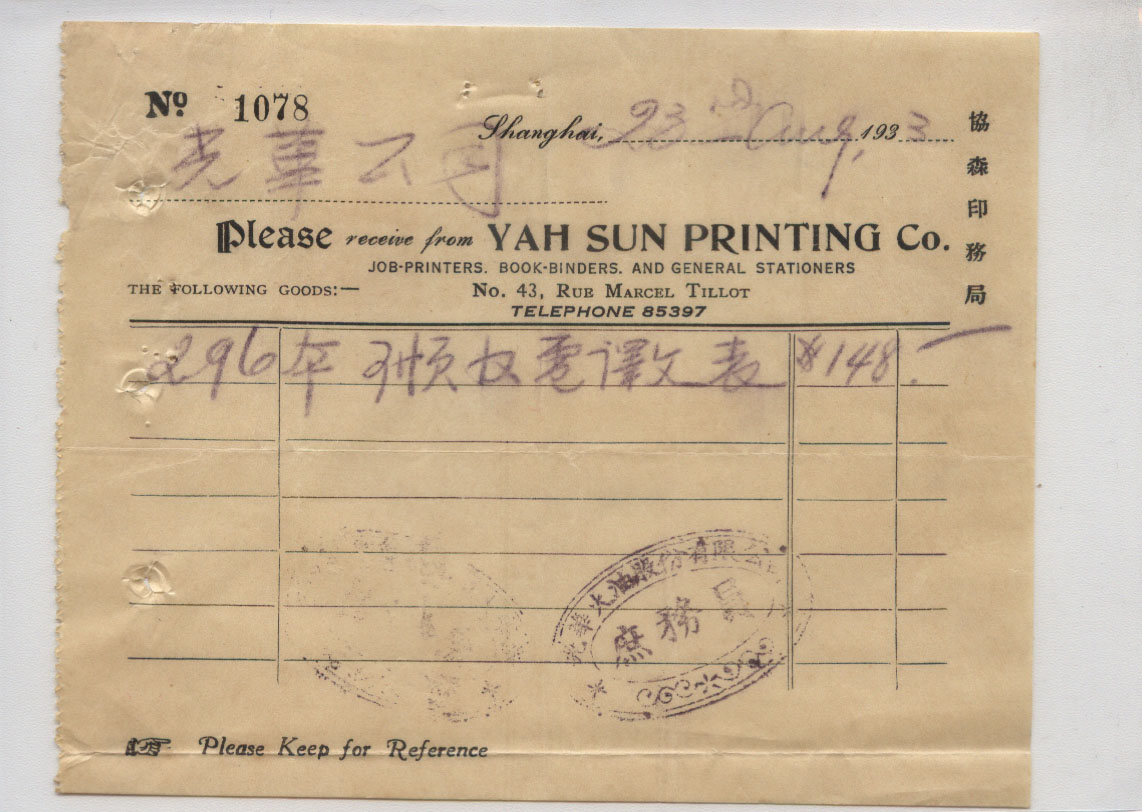 Nº 1078
Shanghai, 23rd Aug, 1933
光華公司
協森印務局
Please receive from YAH SUN PRINTING Co.
JOB-PRINTERS, BOOK-BINDERS, AND GENERAL STATIONERS
THE FOLLOWING GOODS:— No. 43, RUE MARCEL TILLOT
TELEPHONE 85397
296 電 文表 $148.—
光華火油股份有限公司
庶務員
Please Keep for Reference